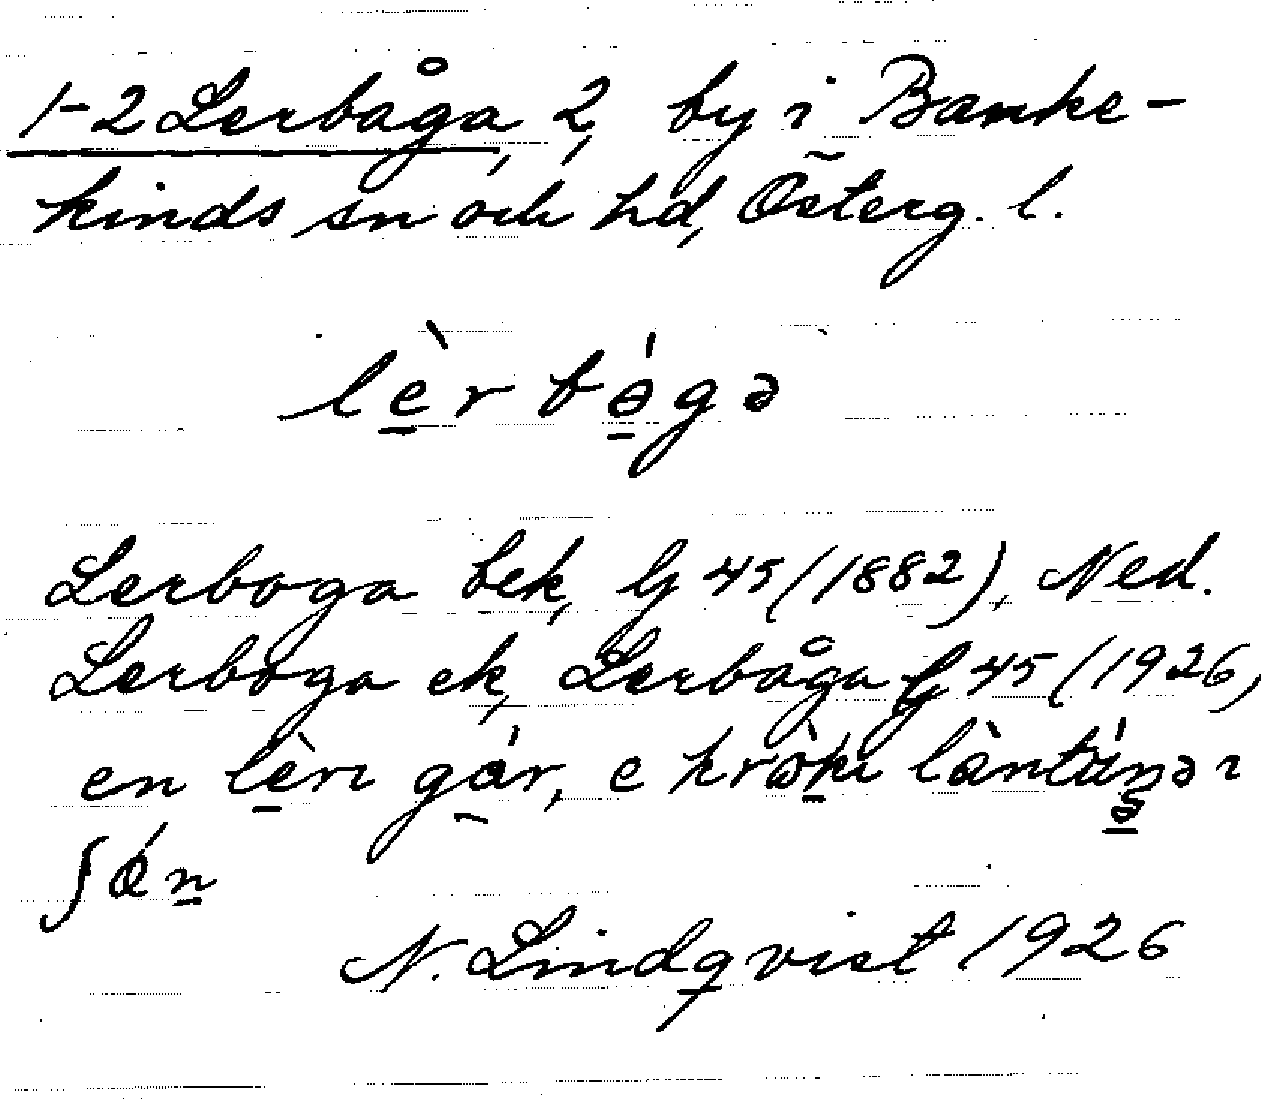 1-2 Lerbåga, 2, by i Banke-
kinds sn och hd, Österg. l.
lèrbǿgə
Lerboga bek, Gg 45 (1882), Ned.
Lerboga ek, Lerbåga Gg 45 (1926,
en lèrı gár, e
N. Lindqvist 1926